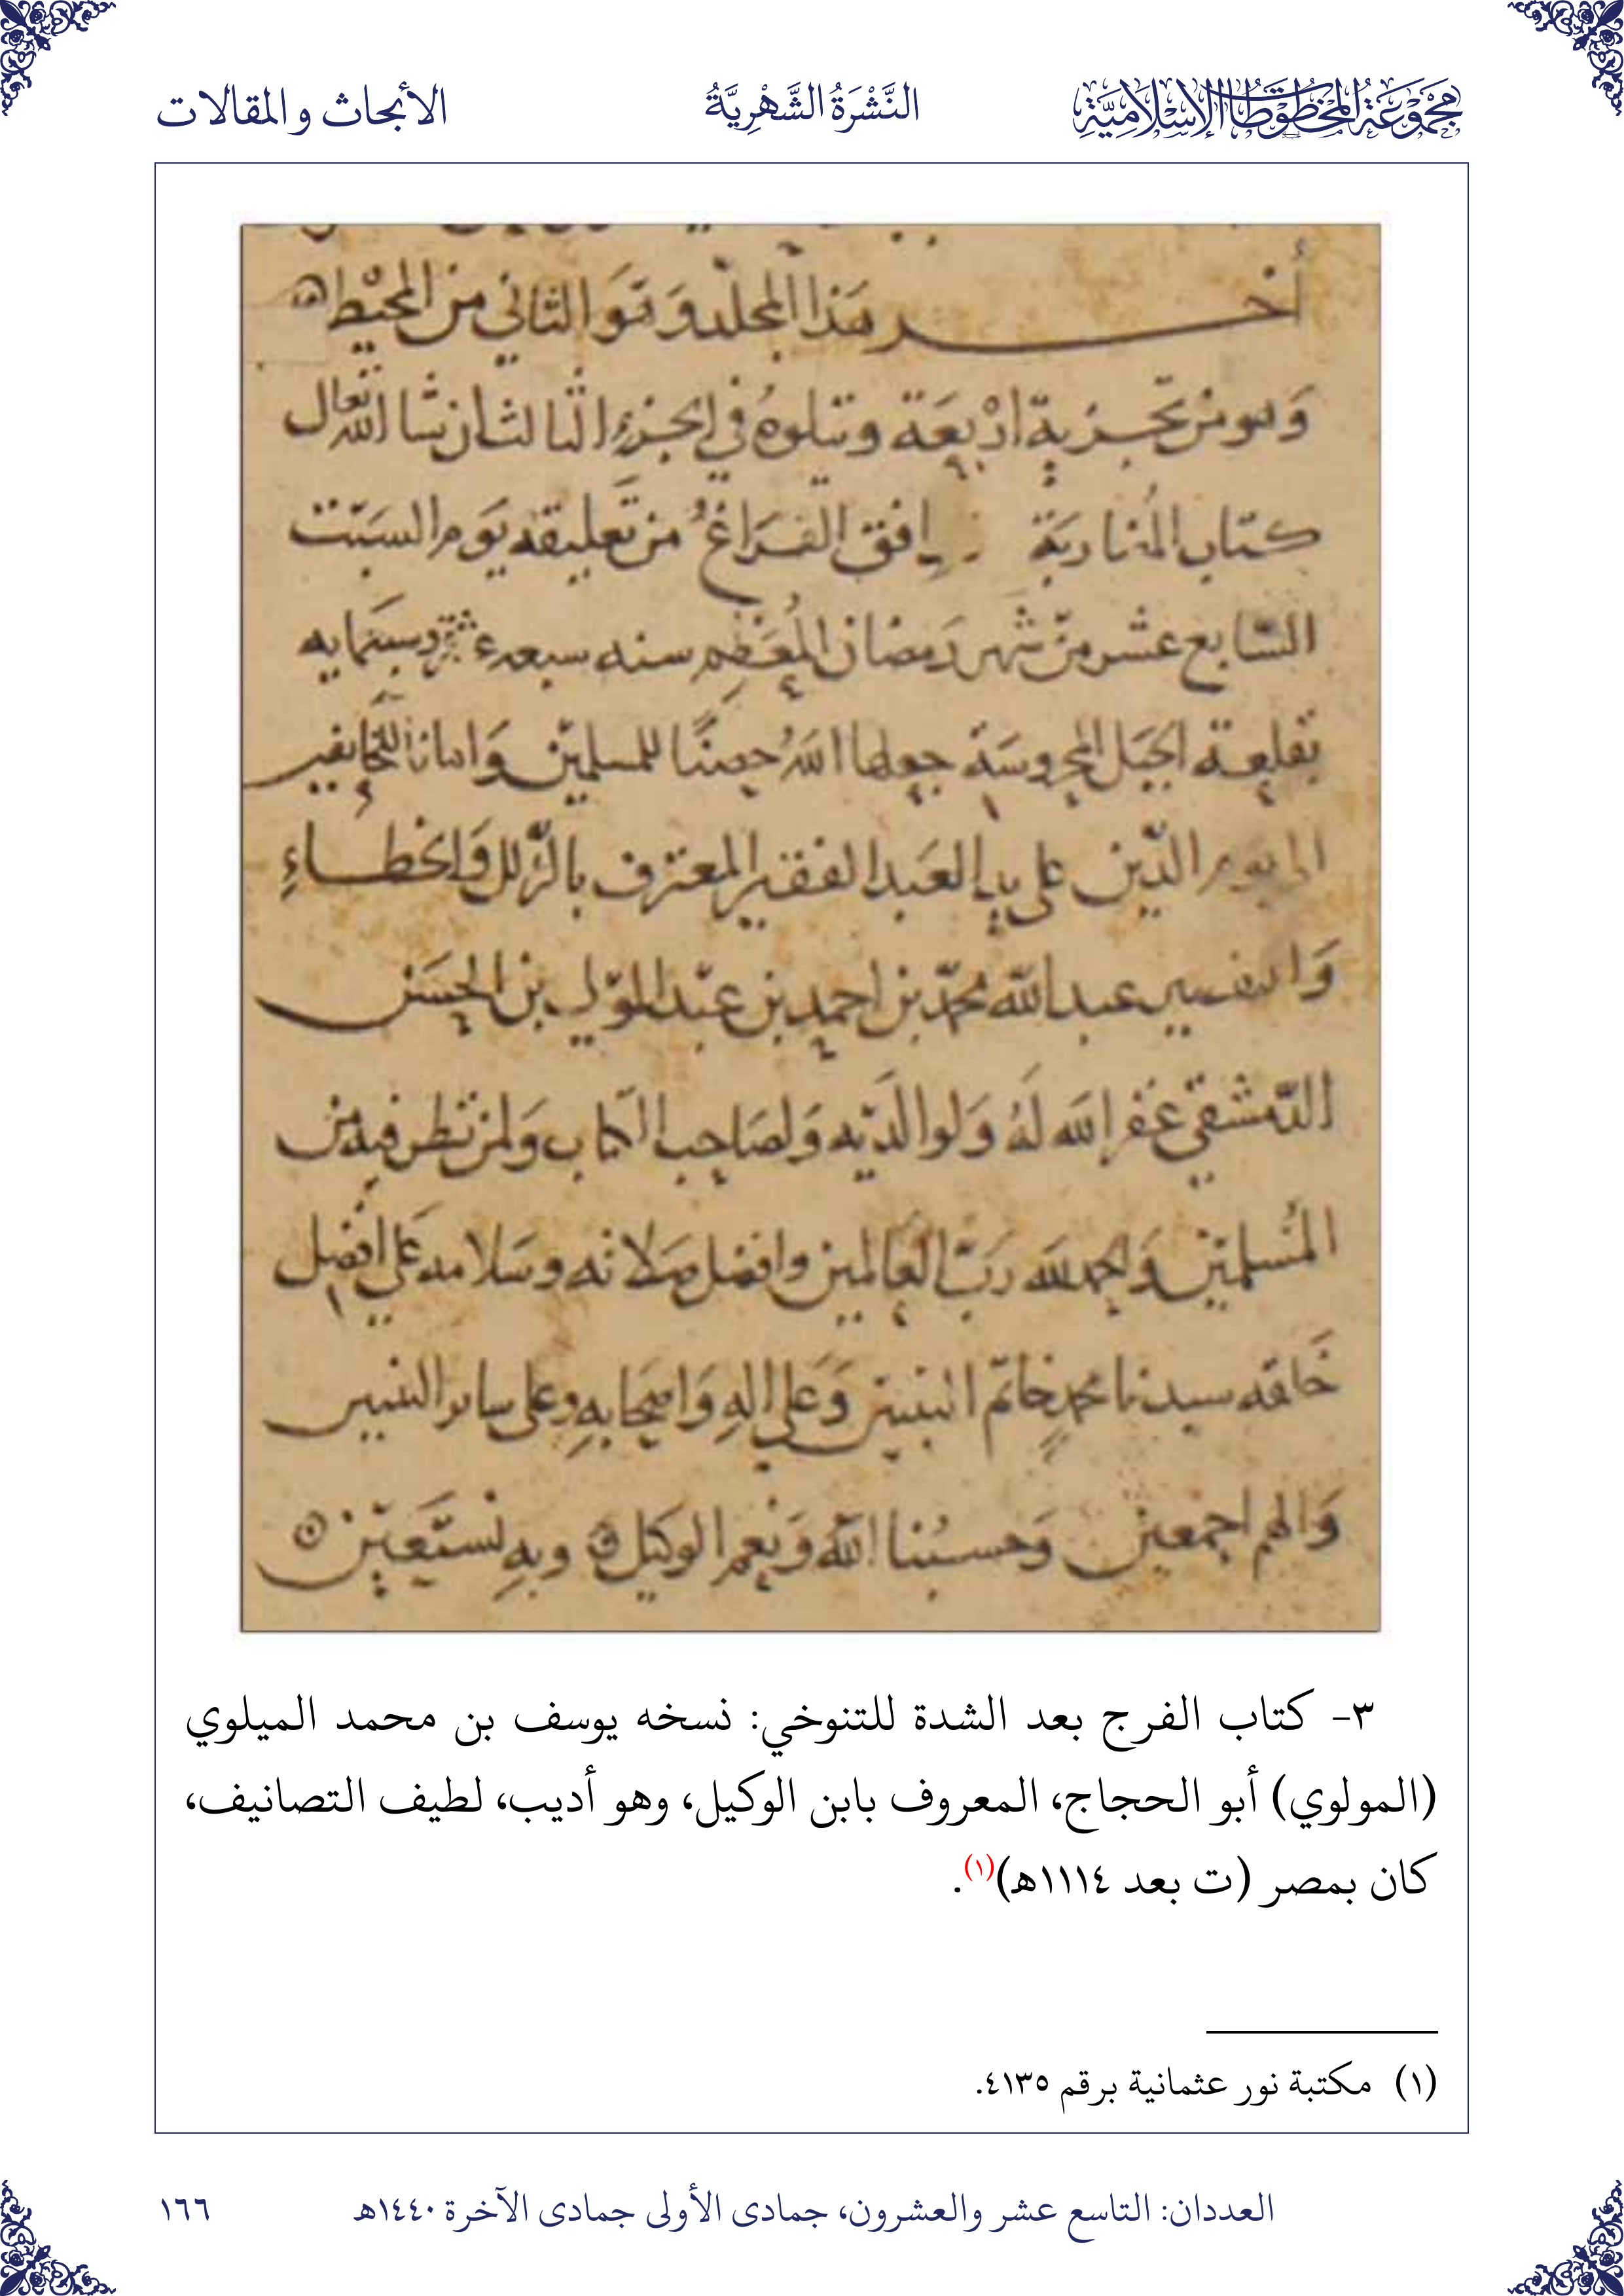 مَجْمُوعَةُ المَخْطُوطَاتِ الإِسْلَامِيَّةِ
النَّشْرَةُ الشَّهْرِيَّةُ
الأبحاث والمقالات
أخر هذا المجلد وهو الثاني من المحيط
وهو من تجزية اربعة ويتلوه في الجزء الثالث ان شا الله تعالى
كتاب المضاربة وافق الفراغ من تعليقه يوم السبت
السابع عشر من شهر رمضان المعظم سنه سبع وسبعمايه
بقلعة الجبل المحروسة جعلها الله حصنا للمسلمين وامانا للخايفين
الى يوم الدين على يد العبد الفقير المعترف بالزلل والخطاء
والتقصير عبد الله محمد بن احمد بن عبد المولى بن الحسن
الدمشقي غفر الله له ولوالديه ولصاحب الكتاب ولمن نظر فيه من
المسلمين والحمد لله رب العالمين وافضل صلاته وسلامه على افضل
خلقه سيدنا محمد خاتم النبيين وعلى اله واصحابه وعلى ساير النبيين
والهم اجمعين وحسبنا الله ونعم الوكيل وبه نستعين
٣- كتاب الفرج بعد الشدة للتنوخي: نسخه يوسف بن محمد الميلوي
(المولوي) أبو الحجاج، المعروف بابن الوكيل، وهو أديب، لطيف التصانيف،
كان بمصر (ت بعد ١١١٤هـ)(١).
(١) مكتبة نور عثمانية برقم ٤١٣٥.
العددان: التاسع عشر والعشرون، جمادى الأولى جمادى الآخرة ١٤٤٠هـ
١٦٦